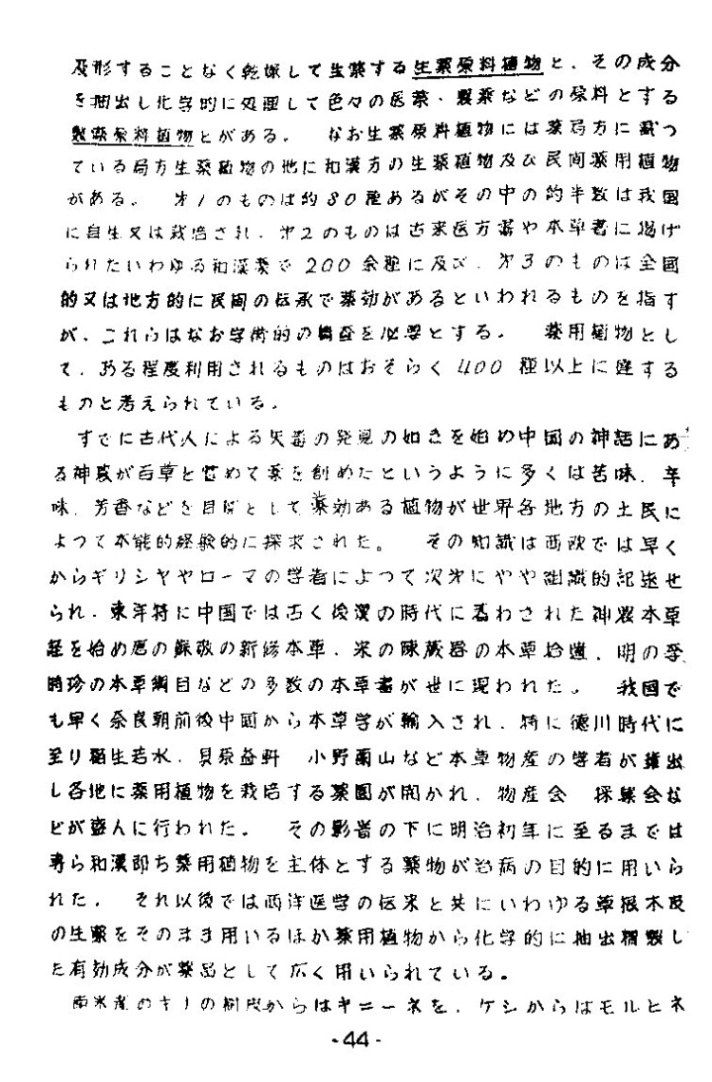 変形することなく乾燥して生薬する生薬原料植物と、その成分
を抽出し化学的に処理して色々の医薬・製薬などの原料とする
製薬原料植物とがある。 なお生薬原料植物には薬局方に載つ
ている局方生薬植物の他に和漢方の生薬植物及び民間薬用植物
がある。 第1のものは約80種あるがその中の約半数は我国
に自生又は栽培され、第2のものは古来医方書や本草書に掲げ
られたいわゆる和漢薬で200余種に及び、第3のものは全国
的又は地方的に民間の伝承で薬効があるといわれるものを指す
が、これらはなお学術的の調査を必要とする。 薬用植物とし
て、ある程度利用されるものはおそらく400種以上に達する
ものと考えられている。
すでに古代人による矢毒の発見の如きを始め中国の神話にあ
る神農が百草を嘗めて薬を創めたというように多くは苦味、辛
味、芳香などを目標として薬効ある植物が世界各地方の土民に
よつて本能的経験的に探求された。 その知識は西欧では早く
からギリシヤやローマの学者によつて次第にやや組織的記述せ
られ、東洋特に中国では古く後漢の時代に著わされた神農本草
経を始め唐の蘇敬の新修本草、宋の陳蔵器の本草拾遺、明の李
時珍の本草綱目などの多数の本草書が世に現われた。 我国で
も早く奈良朝前後中国から本草学が輸入され、特に徳川時代に
至り稲生若水、貝原益軒 小野蘭山など本草物産の学者が輩出
し各地に薬用植物を栽培する薬園が開かれ、物産会 採集会な
どが盛んに行われた。 その影響の下に明治初年に至るまでは
専ら和漢即ち薬用植物を主体とする薬物が治病の目的に用いら
れた。 それ以後では西洋医学の伝来と共にいわゆる草根木皮
の生薬をそのまま用いるほか薬用植物から化学的に抽出精製し
た有効成分が薬品として広く用いられている。
南米産のキナの樹皮からはキニーネを、ケシからはモルヒネ
-44-